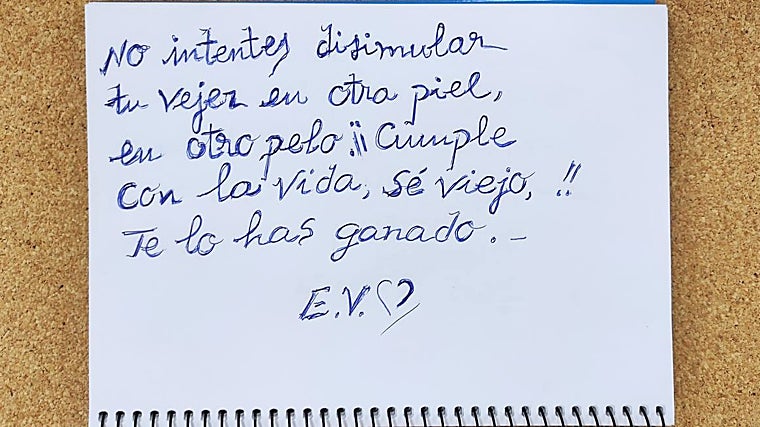 No intentes disimular
tu vejez en otra piel,
en otro pelo ¡¡ Cumple
con la vida, sé viejo, !!
Te lo has ganado. -
E.V.♡